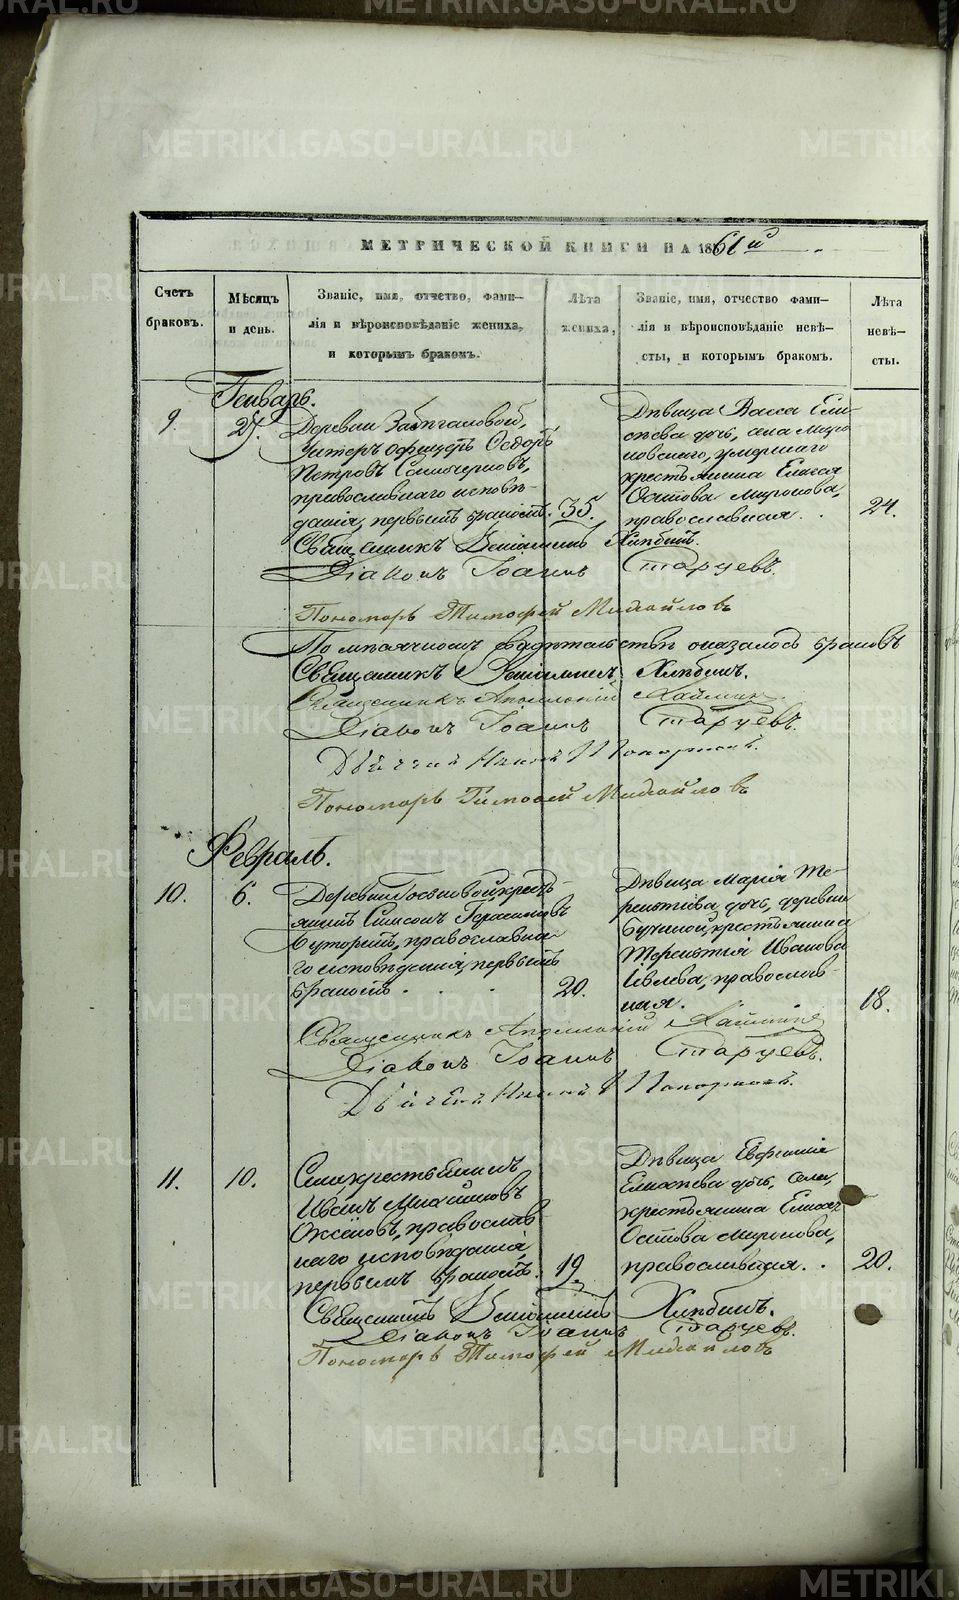 METRIKI.GASO-URAL.RU
МЕТРИЧЕСКОЙ КНИГИ НА 1861 й
Счетъ браковъ.
Мѣсяцъ и день.
Званіе, имя, отчество, фами-
лія и вѣроисповѣданіе жениха,
и которымъ бракомъ.
Лѣта жениха,
Званіе, имя, отчество фами-
лія и вѣроисповѣданіе невѣ-
сты, и которымъ бракомъ.
Лѣта невѣ-
сты.
Генварь.
9.
27.
Деревни
Унтеръ офицеръ Ѳедоръ
Петровъ
православнаго исповѣ-
данія, первымъ бракомъ.
35.
Дѣвица Васса Ели-
сѣева дочь, села Миро
новскаго, умершаго
крестьянина Елисея
Осипова Миронова,
православная.
24.
Священникъ Веніаминъ Хлѣбинъ.
Діаконъ Іоаннъ Старцевъ.
Пономарь Тимофей Михайловъ
По мѣсячному свидѣтельству оказалось браковъ
Священникъ Веніаминъ Хлѣбинъ.
Священникъ Аполлоній
Діаконъ Іоаннъ Старцевъ.
Дьячекъ
Пономарь Тимофей Михайловъ
Февраль.
10.
6.
Деревни крестъ-
янинъ Симеонъ Герасимовъ
православна-
го исповѣданія, первымъ
бракомъ
20.
Дѣвица Марія Те-
рентіева дочь, деревни
Бучиной, крестьянина
Терентія Иванова
Ивлева, православ-
ная.
18.
Священникъ Аполлоній
Діаконъ Іоаннъ Старцевъ.
Дьячекъ
11.
10.
православ
наго исповѣданія,
первымъ бракомъ.
19.
Дѣвица Евфимія
Елисѣева дочь, села,
крестьянина Елисея
Осипова Миронова,
православная.
20.
Священникъ Веніаминъ Хлѣбинъ.
Діаконъ Іоаннъ Старцевъ.
Пономарь Тимофей Михайловъ